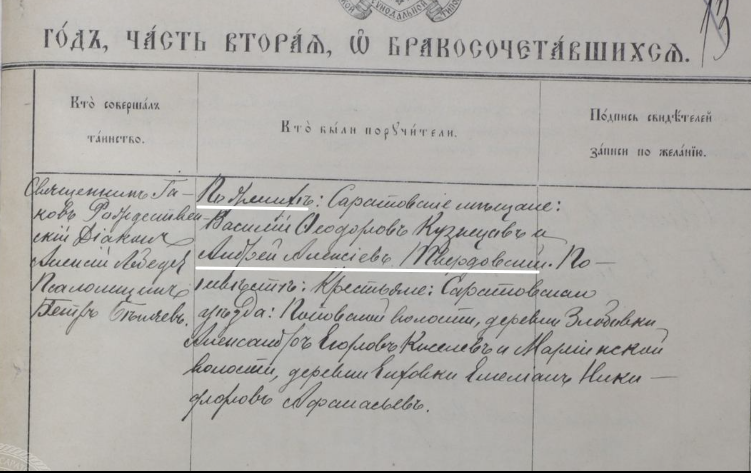 СИНОДАЛЬНОЙ
13
ГО́ДЪ, ЧА́СТЬ ВТОРА́Я, Ѡ БРАКОСОЧЕТА́ВШИХСѦ.
Кто̀ соверша́лъ
та́инство.
Кто̀ бы́ли порꙋчи́тели.
По́дпись свидѣ́телей
за́писи по жела́нїю.
Священникъ Іа-
ковъ Рождествен
скій Діаконъ
Алексій Лебедев
Псаломщикъ
Петръ Бѣляевъ.
По женихѣ: Саратовскіе мѣщане:
Василій Ѳеодоровъ Кузнецовъ и
Андрей Алексіевъ Твердовскій. По
невѣстѣ: Крестьяне: Саратовскаго
уѣзда: Поповской волости, деревни Злобовки
Александръ Егоровъ Киселевъ и Маріинской
волости, деревни Ники-
форовъ Афанасьевъ.